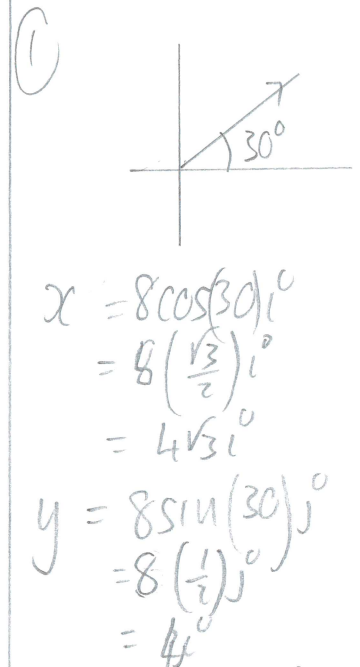 ①
30°
x = 8cos(30)i°
= 8(√3/2)i°
= 4√3i°
y = 8sin(30)j°
= 8(1/2)j°
= 4j°